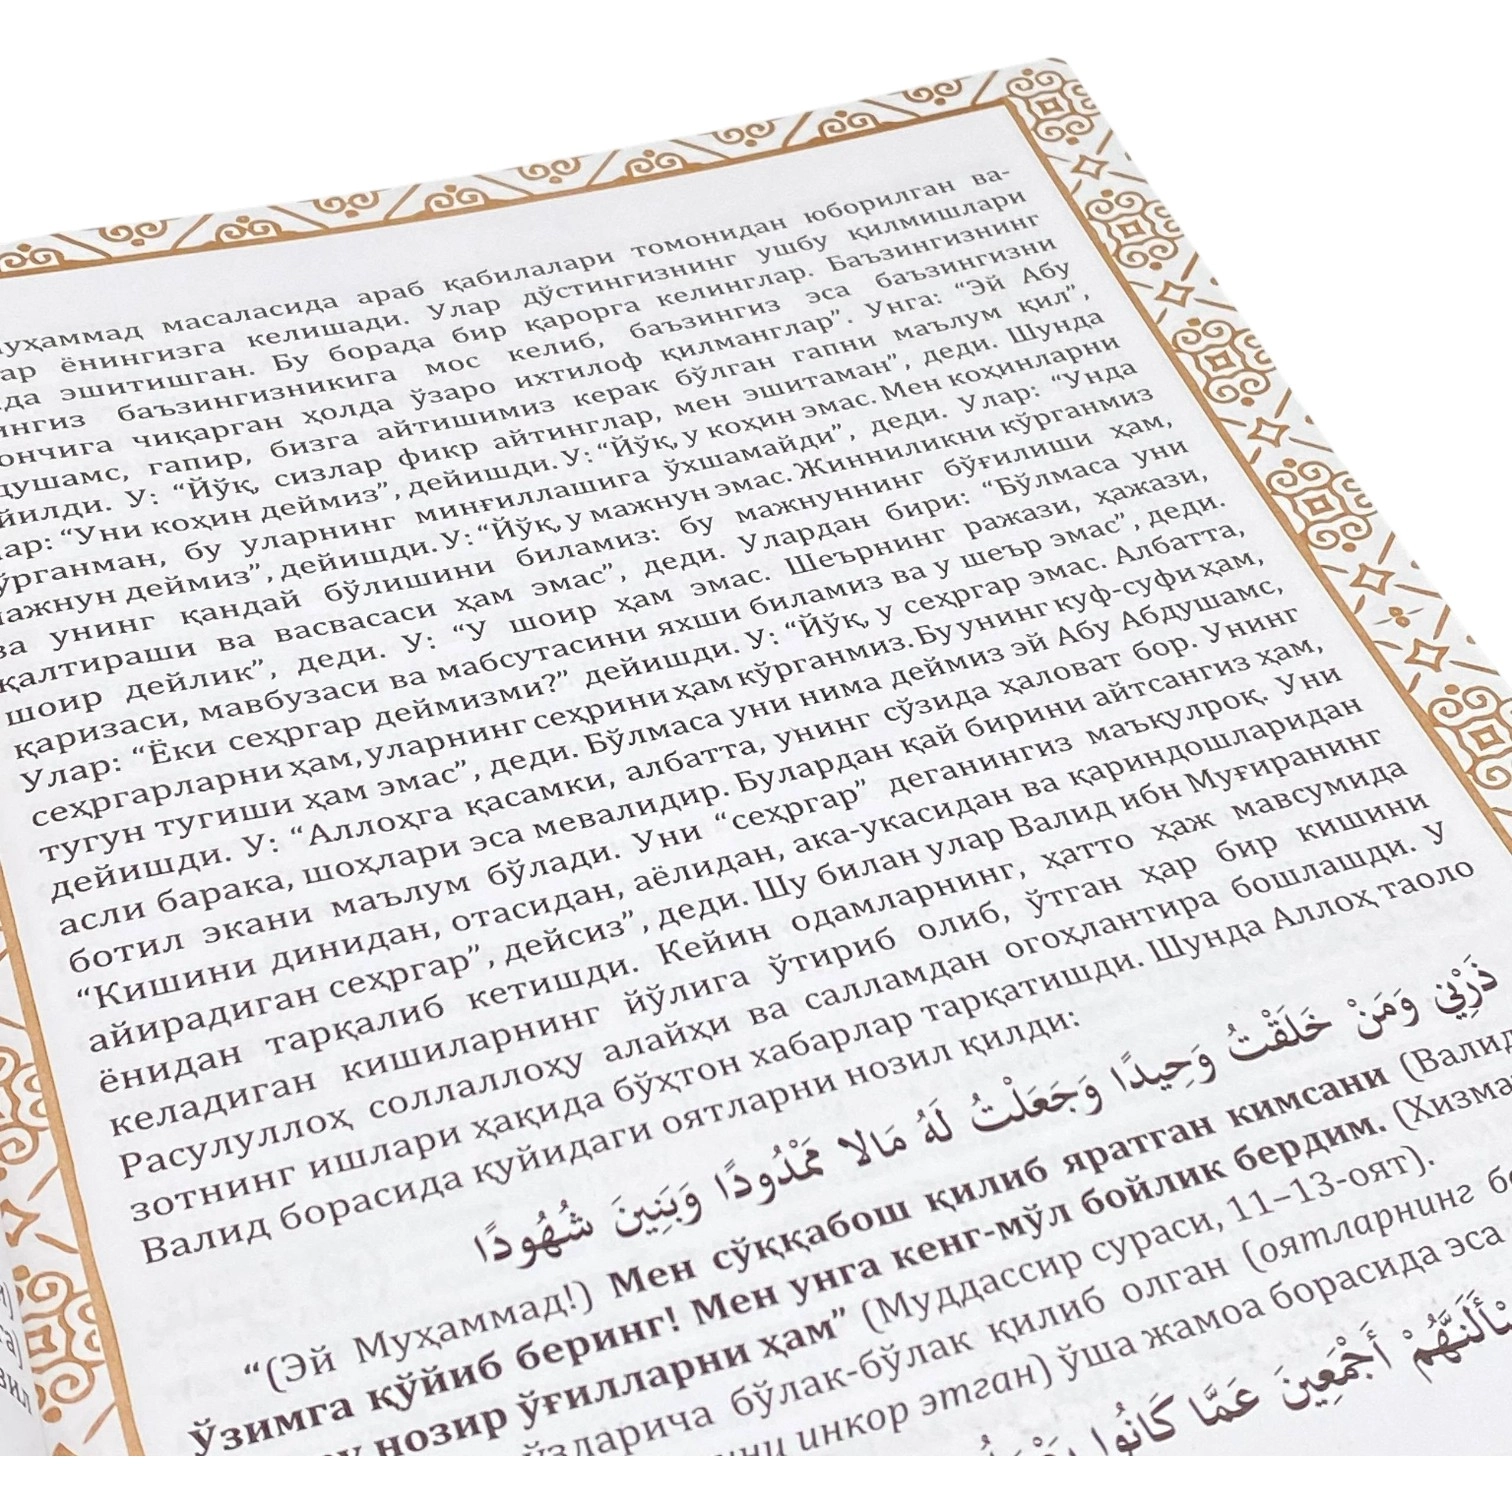 масаласида араб қабилалари томонидан юборилган ва-
ёнингизга келишади. Улар дўстингизнинг ушбу қилмишлари
эшитишган. Бу борада бир қарорга келинглар. Баъзингизнинг
баъзингизникига мос келиб, баъзингиз эса баъзингизни
чиқарган ҳолда ўзаро ихтилоф қилманглар”. Унга: “Эй Абу
гапир, бизга айтишимиз керак бўлган гапни маълум қил”,
У: “Йўқ, сизлар фикр айтинглар, мен эшитаман”, деди. Шунда
“Уни коҳин деймиз”, дейишди. У: “Йўқ, у коҳин эмас. Мен коҳинларни
бу уларнинг минғиллашига ўхшамайди”, деди. Улар: “Унда
деймиз”, дейишди. У: “Йўқ, у мажнун эмас. Жинниликни кўрганмиз
ва унинг қандай бўлишини биламиз: бу мажнуннинг бўғилиши ҳам,
қалтираши ва васвасаси ҳам эмас”, деди. Улардан бири: “Бўлмаса уни
шоир дейлик”, деди. У: “У шоир ҳам эмас. Шеърнинг ражази, ҳажази,
қаризаси, мавбузаси ва мабсутасини яхши биламиз ва у шеър эмас”, деди.
Улар: “Ёки сеҳргар деймизми?” дейишди. У: “Йўқ, у сеҳргар эмас. Албатта,
сеҳргарларни ҳам, уларнинг сеҳрини ҳам кўрганмиз. Бу унинг куф-суфи ҳам,
тугун тугиши ҳам эмас”, деди. Бўлмаса уни нима деймиз эй Абу Абдушамс,
дейишди. У: “Аллоҳга қасамки, албатта, унинг сўзида ҳаловат бор. Унинг
асли барака, шоҳлари эса мевалидир. Булардан қай бирини айтсангиз ҳам,
ботил экани маълум бўлади. Уни “сеҳргар” деганингиз маъқулроқ. Уни
“Кишини динидан, отасидан, аёлидан, ака-укасидан ва қариндошларидан
айирадиган сеҳргар”, дейсиз”, деди. Шу билан улар Валид ибн Муғиранинг
ёнидан тарқалиб кетишди. Кейин одамларнинг, ҳатто ҳаж мавсумида
келадиган кишиларнинг йўлига ўтириб олиб, ўтган ҳар бир кишини
Расулуллоҳ соллаллоҳу алайҳи ва салламдан огоҳлантира бошлашди. У
зотнинг ишлари ҳақида бўҳтон хабарлар тарқатишди. Шунда Аллоҳ таоло
Валид борасида қуйидаги оятларни нозил қилди:
ذَرْنِي وَمَنْ خَلَقْتُ وَحِيدًا وَجَعَلْتُ لَهُ مَالا مَمْدُودًا وَبَنِينَ شُهُودًا
“(Эй Муҳаммад!) Мен сўққабош қилиб яратган кимсани (Валид
ўзимга қўйиб беринг! Мен унга кенг-мўл бойлик бердим. (Хизма
нозир ўғилларни ҳам” (Муддассир сураси, 11–13-оят).
бўлак-бўлак қилиб олган (оятларнинг
инкор этган) ўша жамоа борасида эса
أَجْمَعِينَ عَمَّا كَانُوا